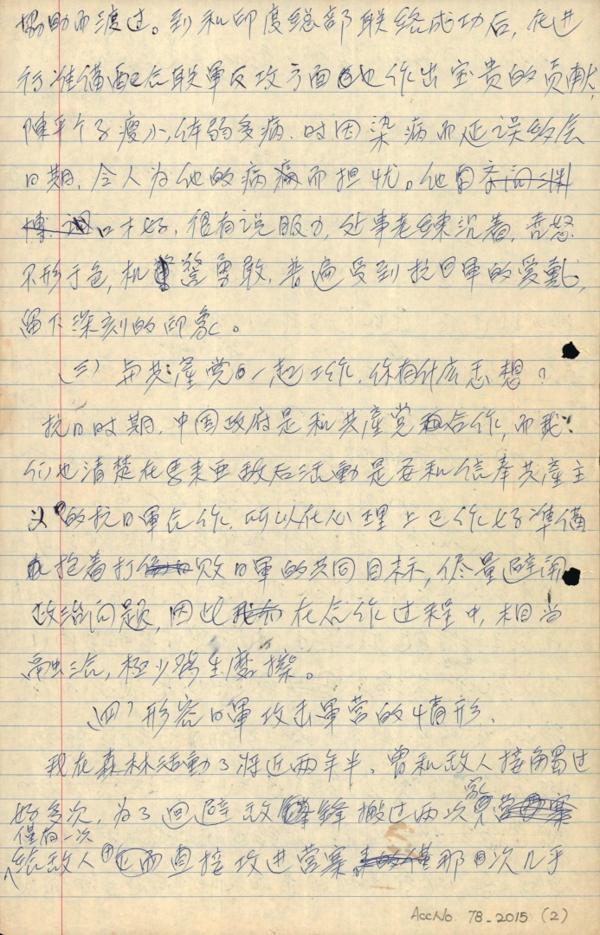 协助而渡过。到和印度总部联络成功后，在进
行准備配合联军反攻方面也作出宝贵的贡献，
陳平个子瘦小，体弱多病，时因染病而延误约会
日期，令人为他的病痛而担忧。他
口才好，很有说服力，处事老練沉着，喜怒
不形于色，机警勇敢，普遍受到抗日軍的爱戴，
留下深刻的印象。
(三) 与共產党一起工作，你有什么思想？
抗日时期，中国政府是和共產党合作，而我
们也清楚在馬来亜敌后活動是要和信奉共產主
义的抗日軍合作，所以在心理上已作好準備
抱着打败日軍的共同目标，尽量避開
政治问题，因此在合作过程中，相当
融洽，极少發生磨擦。
(四) 形容日軍攻击軍营的情形。
我在森林活動了将近两年半，曾和敌人接觸过
好多次，为了回避敌鋒搬过两次營寨
僅有一次
给敌人正面直接攻进营寨 那次几乎
AccNo 78-2015 (2)